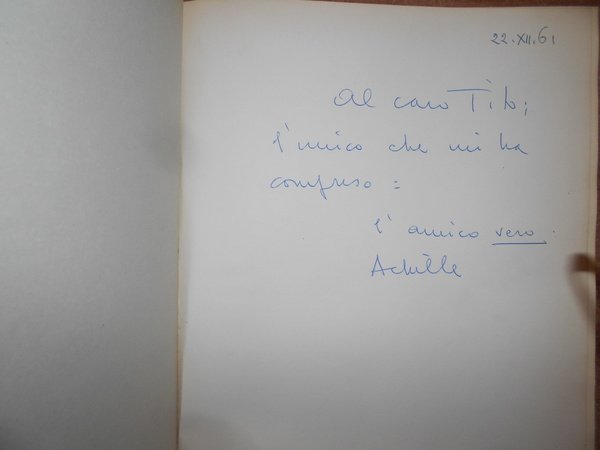 22.XII.61
Al caro Tito;
l'unico che mi ha
compreso =
l'amico vero.
Achille